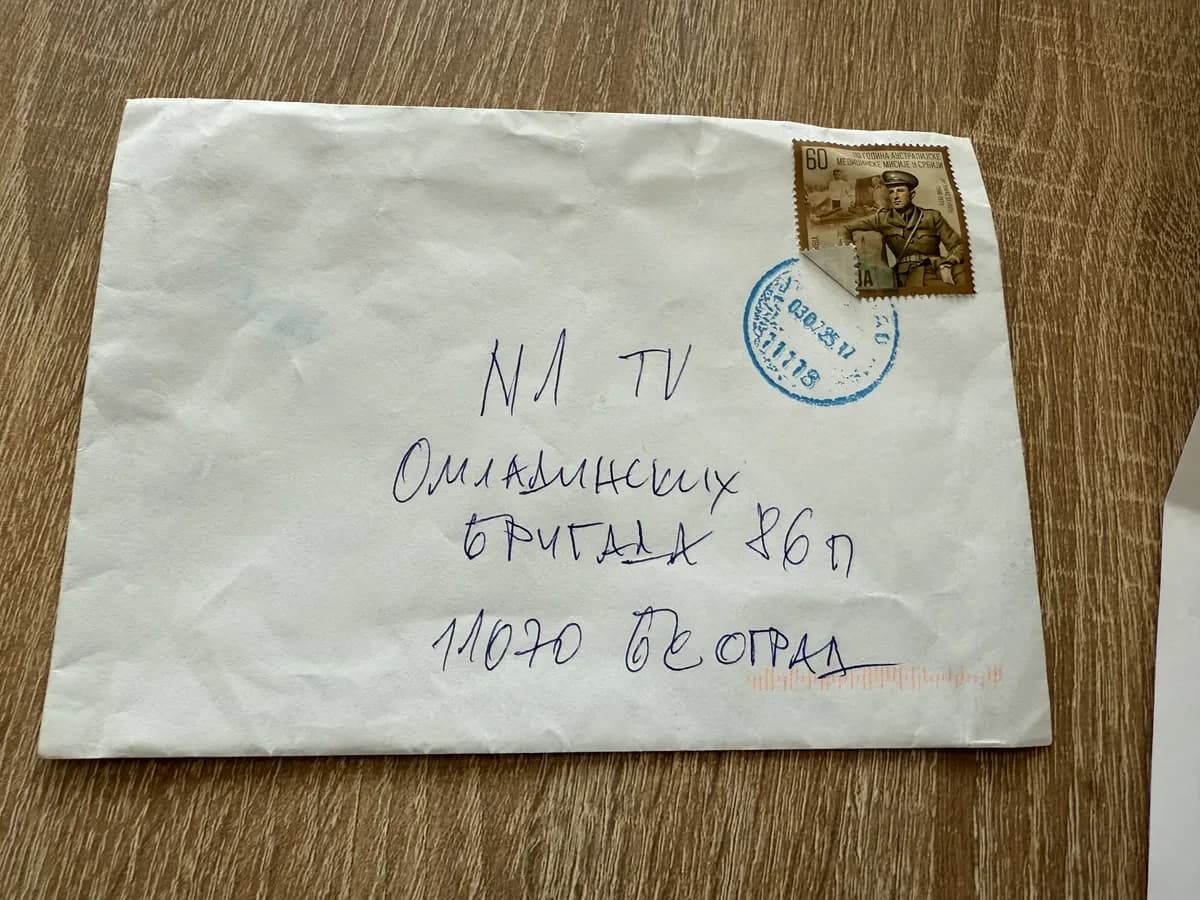 60
110 ГОДИНА АУСТРАЛИЈСКЕ
МЕДИЦИНСКЕ МИСИЈЕ У СРБИЈИ
11118
N1 TV
Омладинских
Бригада 86п
11070 Београд